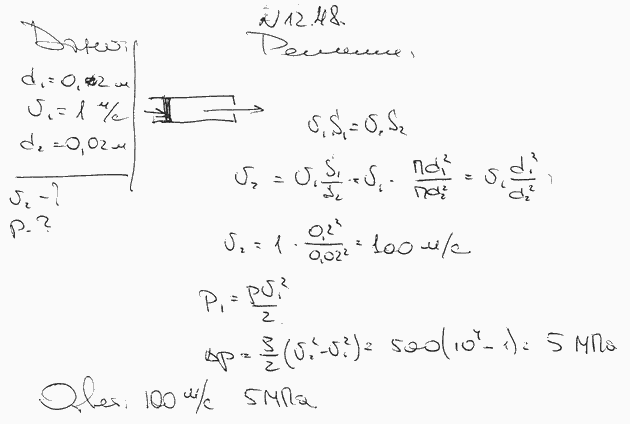 N 12.48.
Дано:
Решение.
d₁ = 0,2 м
υ₁ = 1 м/с
d₂ = 0,02 м
υ₂ - ?
p - ?
υ₁S₁ = υ₂S₂
υ₂ = υ₁ S₁/S₂ = υ₁ · πd₁²/πd₂² = υ₁ d₁²/d₂²
υ₂ = 1 · 0,2²/0,02² = 100 м/с
P₁ = ρυ₁²/2
Δp = ρ/2 (υ₂² - υ₁²) = 500(10⁴ - 1) = 5 МПа
Ответ: 100 м/с 5 МПа